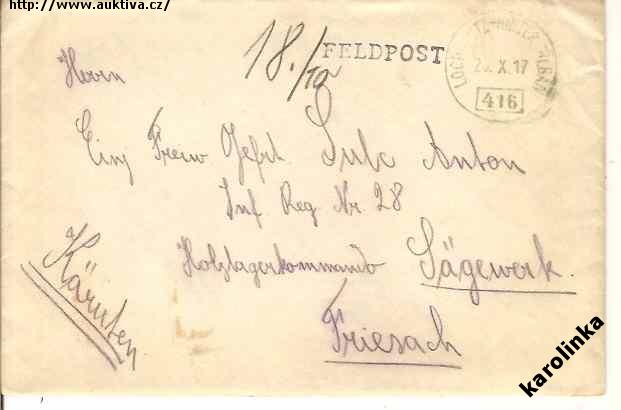 http://www.auktiva.cz/
18./10
FELDPOST
20.X.17
416
Herrn
Einj Freiw Gefrt. Sulc Anton
Inf Reg Nr. 28
Holzlagerkommando Sägewerk.
Friesach
Kärnten
karolinka